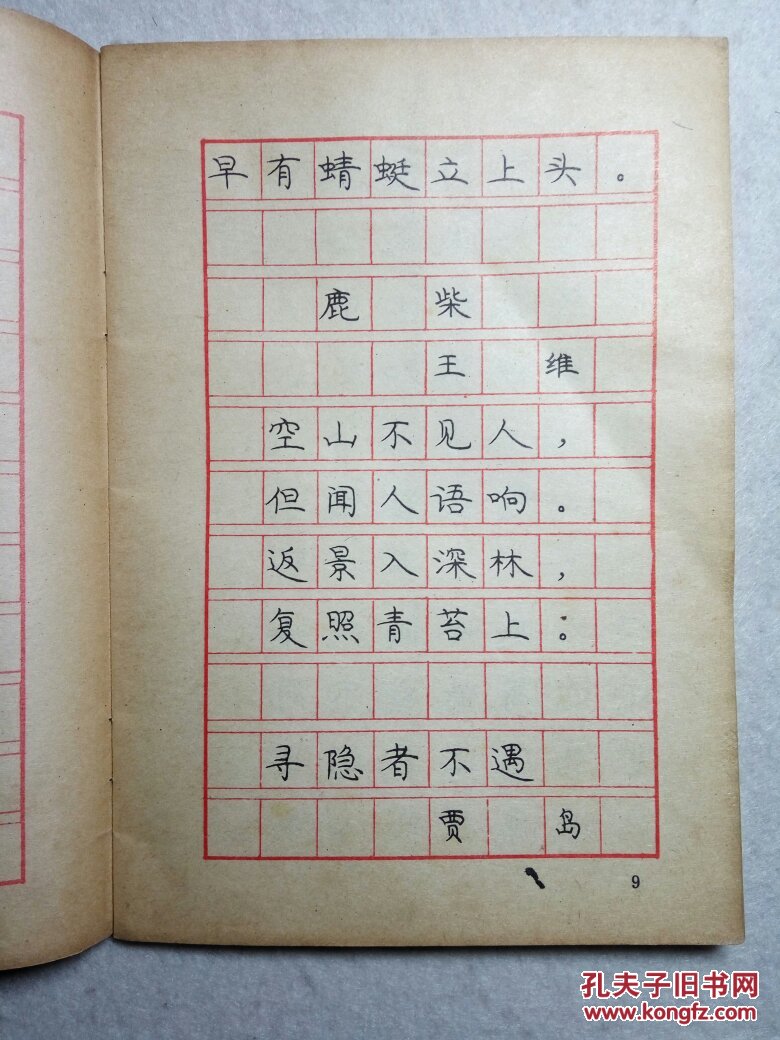 早有蜻蜓立上头。
鹿柴
王维
空山不见人，
但闻人语响。
返景入深林，
复照青苔上。
寻隐者不遇
贾岛
9
孔夫子旧书网
www.kongfz.com